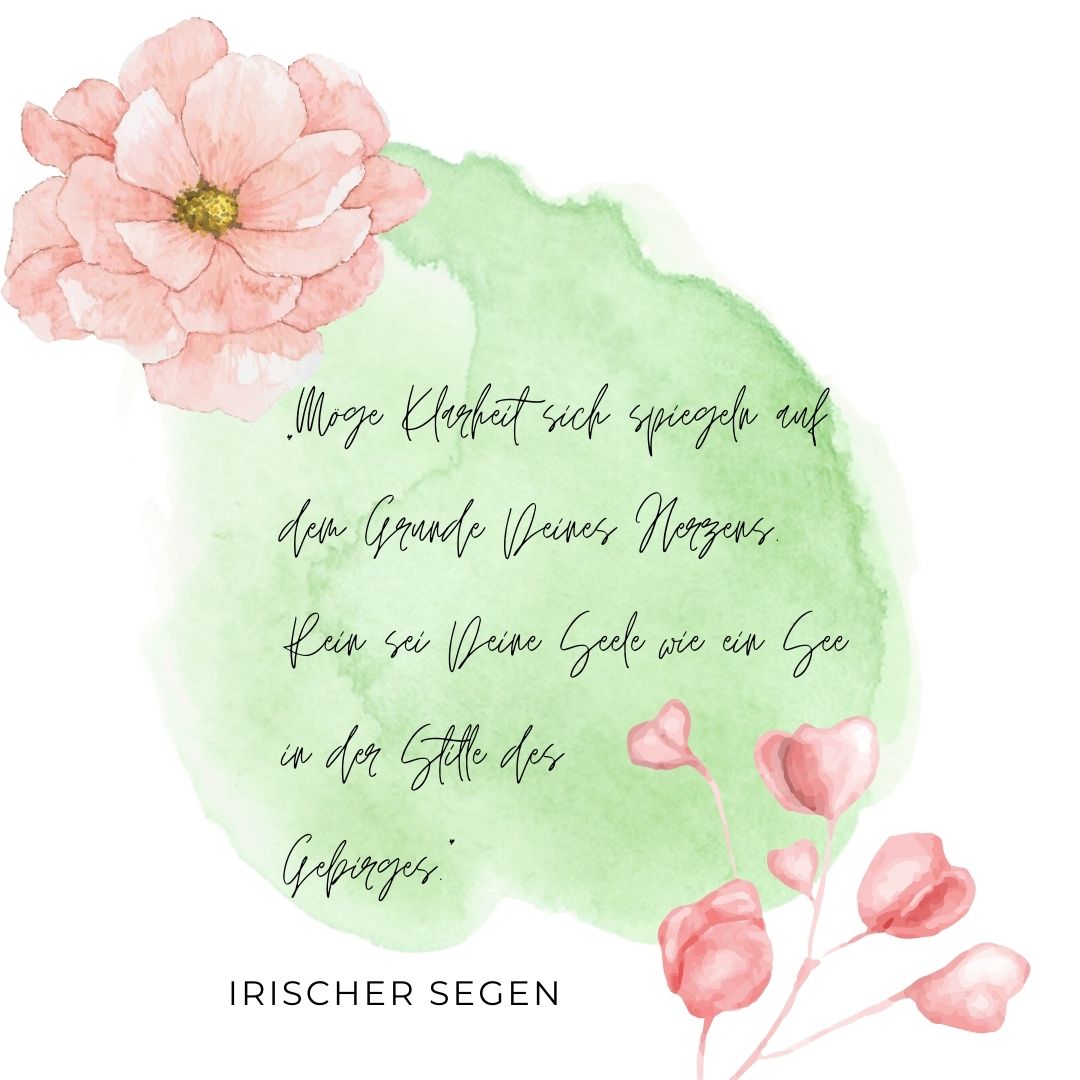 „Möge Klarheit sich spiegeln auf
dem Grunde Deines Herzens.
Rein sei Deine Seele wie ein See
in der Stille des
Gebirges.“
IRISCHER SEGEN